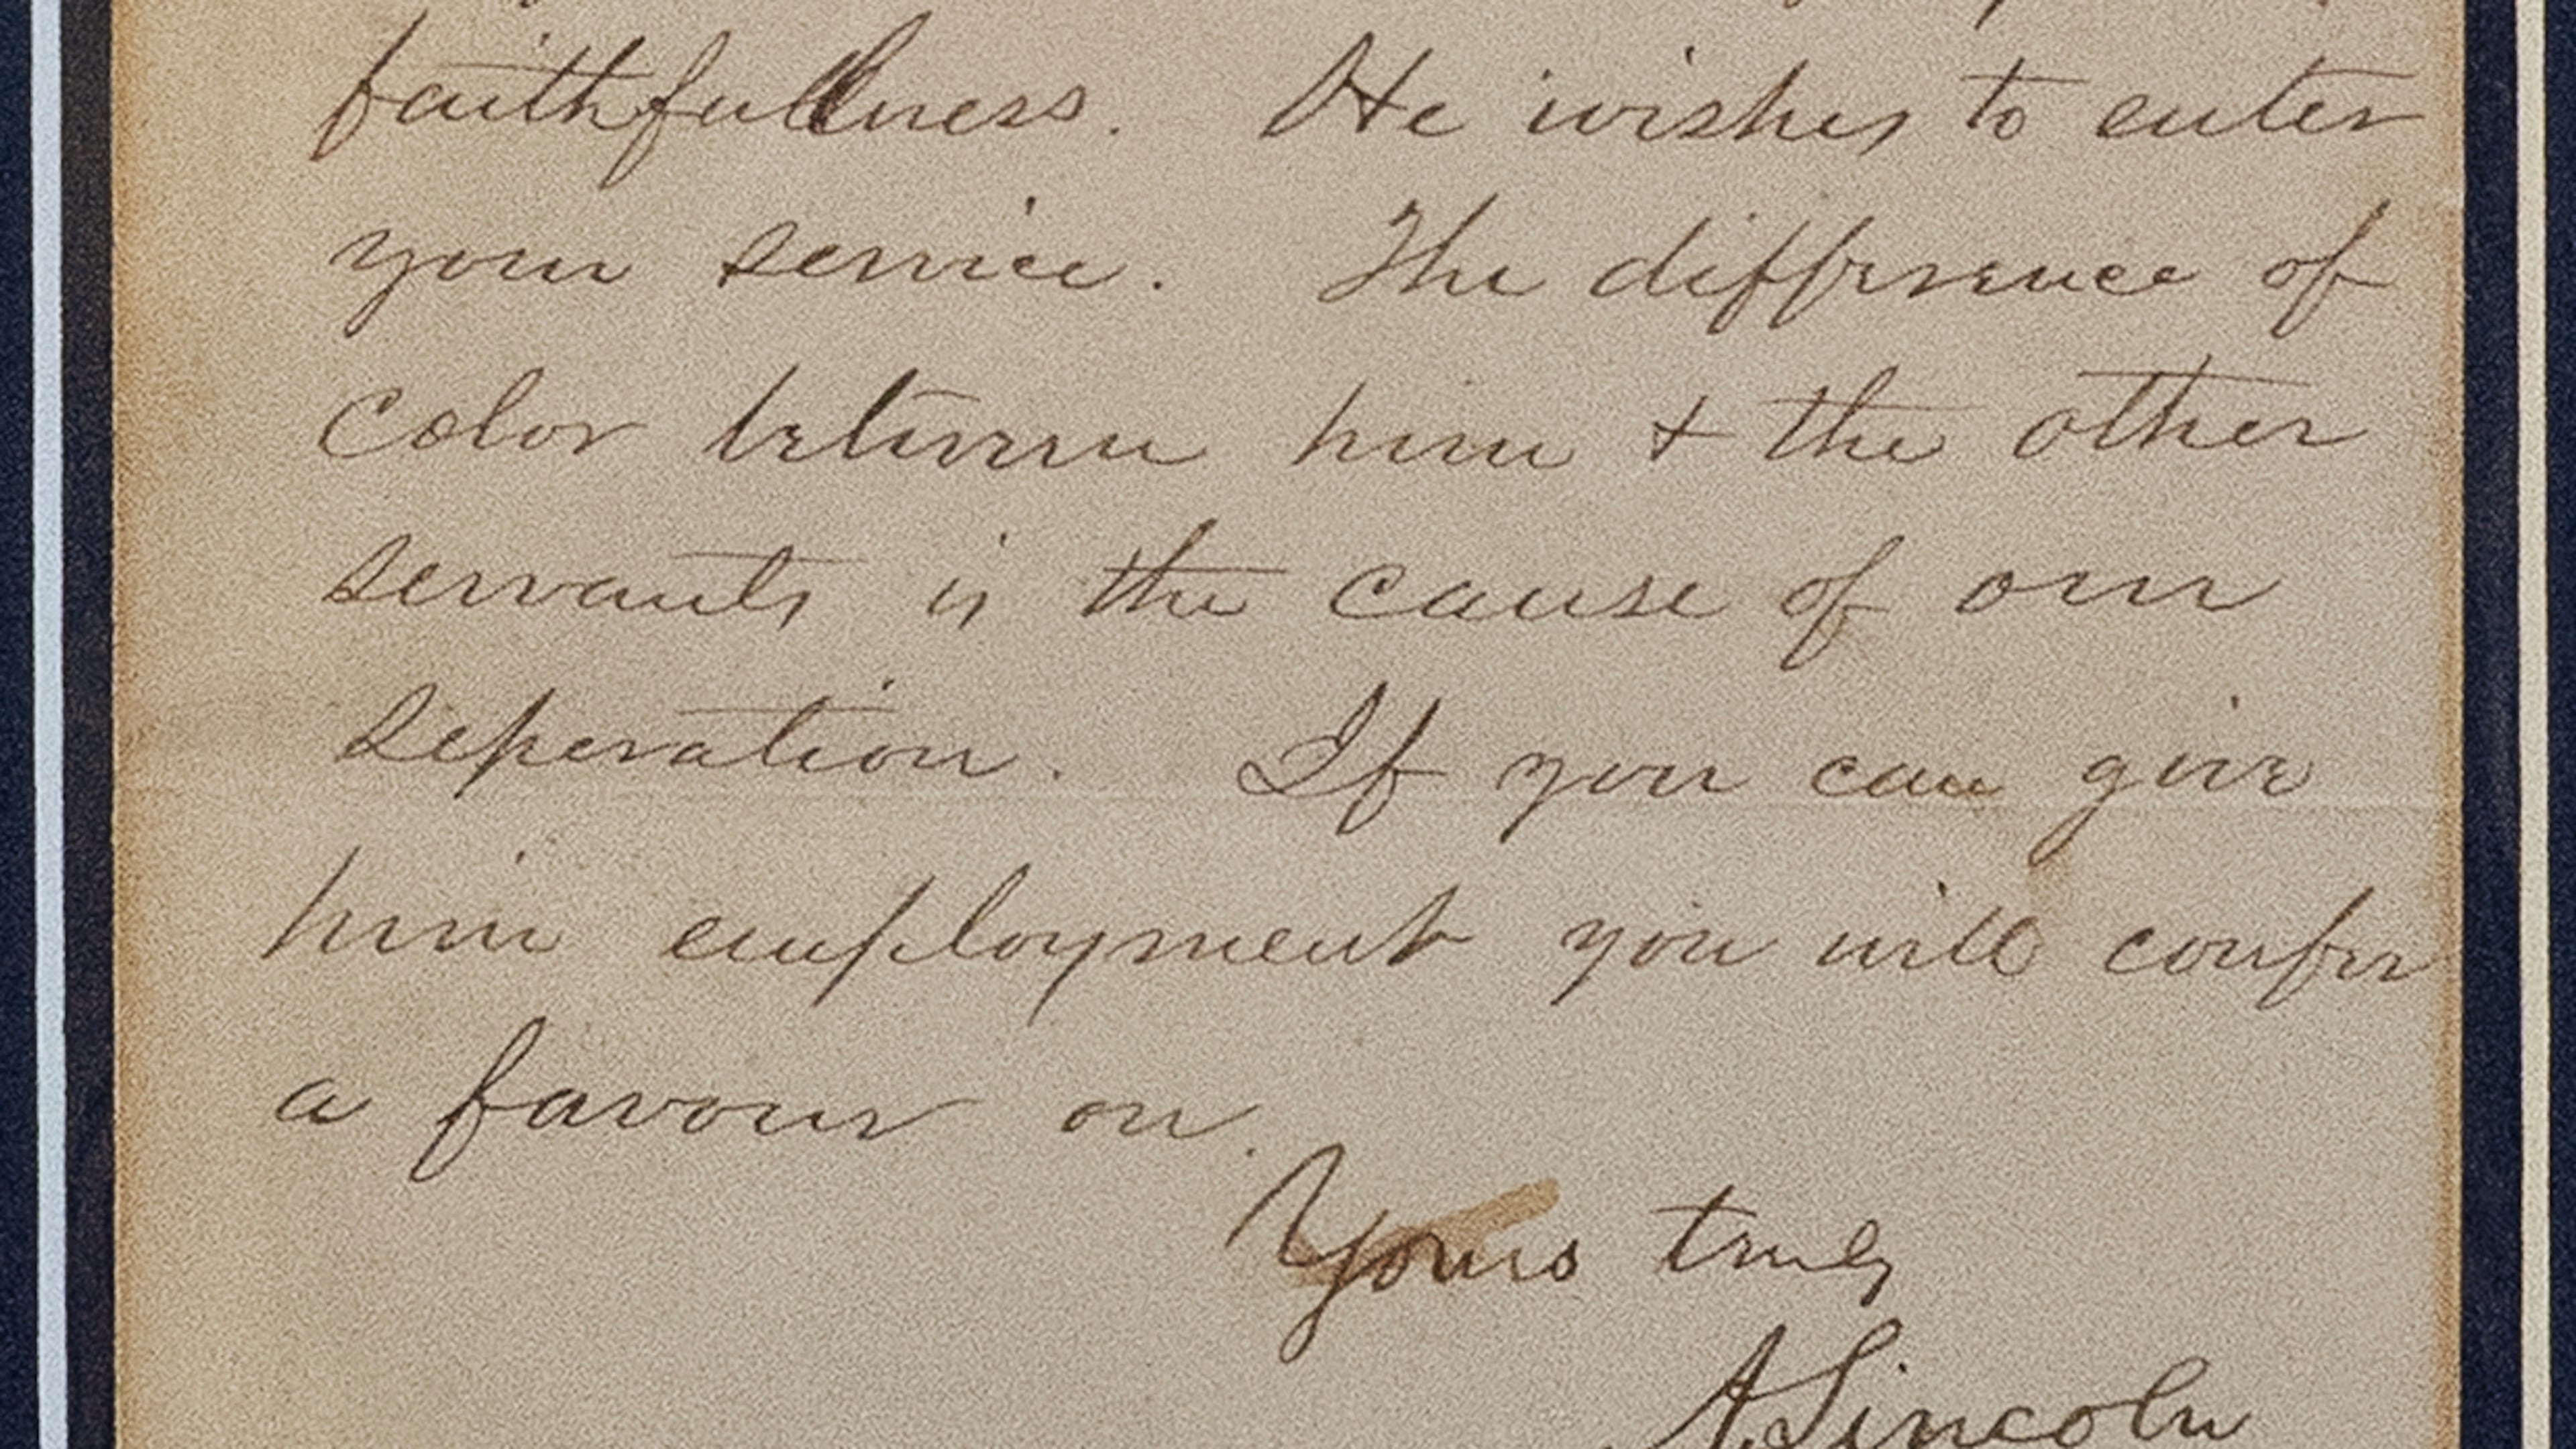 faithfullness. He wishes to enter
your service. The difference of
color between him & the other
servants is the cause of our
seperation. If you can give
him employment you will confer
a favour on.
Yours truly
A Lincoln